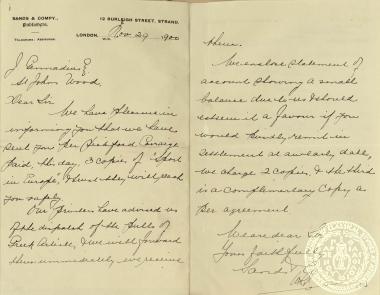 SANDS & COMPY.,
Publishers.
12 BURLEIGH STREET, STRAND,
LONDON, W.C. Nov 29 1900
J Gennadius Esq.
St John Wood,
Dear Sir
We have pleasure in
informing you that we have
sent you per Pickford Carriage
paid, this day, 3 Copies of Sport
in Europe, & trust they will reach
you safely.
Our Printers have advised us
of the dispatch of the pulls of
Greek Article, & we will forward
them immediately we receive
them.
We enclose Statement of
account showing a small
balance due to us & should
esteem it a favour if you
would kindly remit in
settlement at an early date,
we charge 2 Copies, & the third
is a Complimentary Copy as
per agreement
We are dear Sir
Yours faithfully
Sands & Co